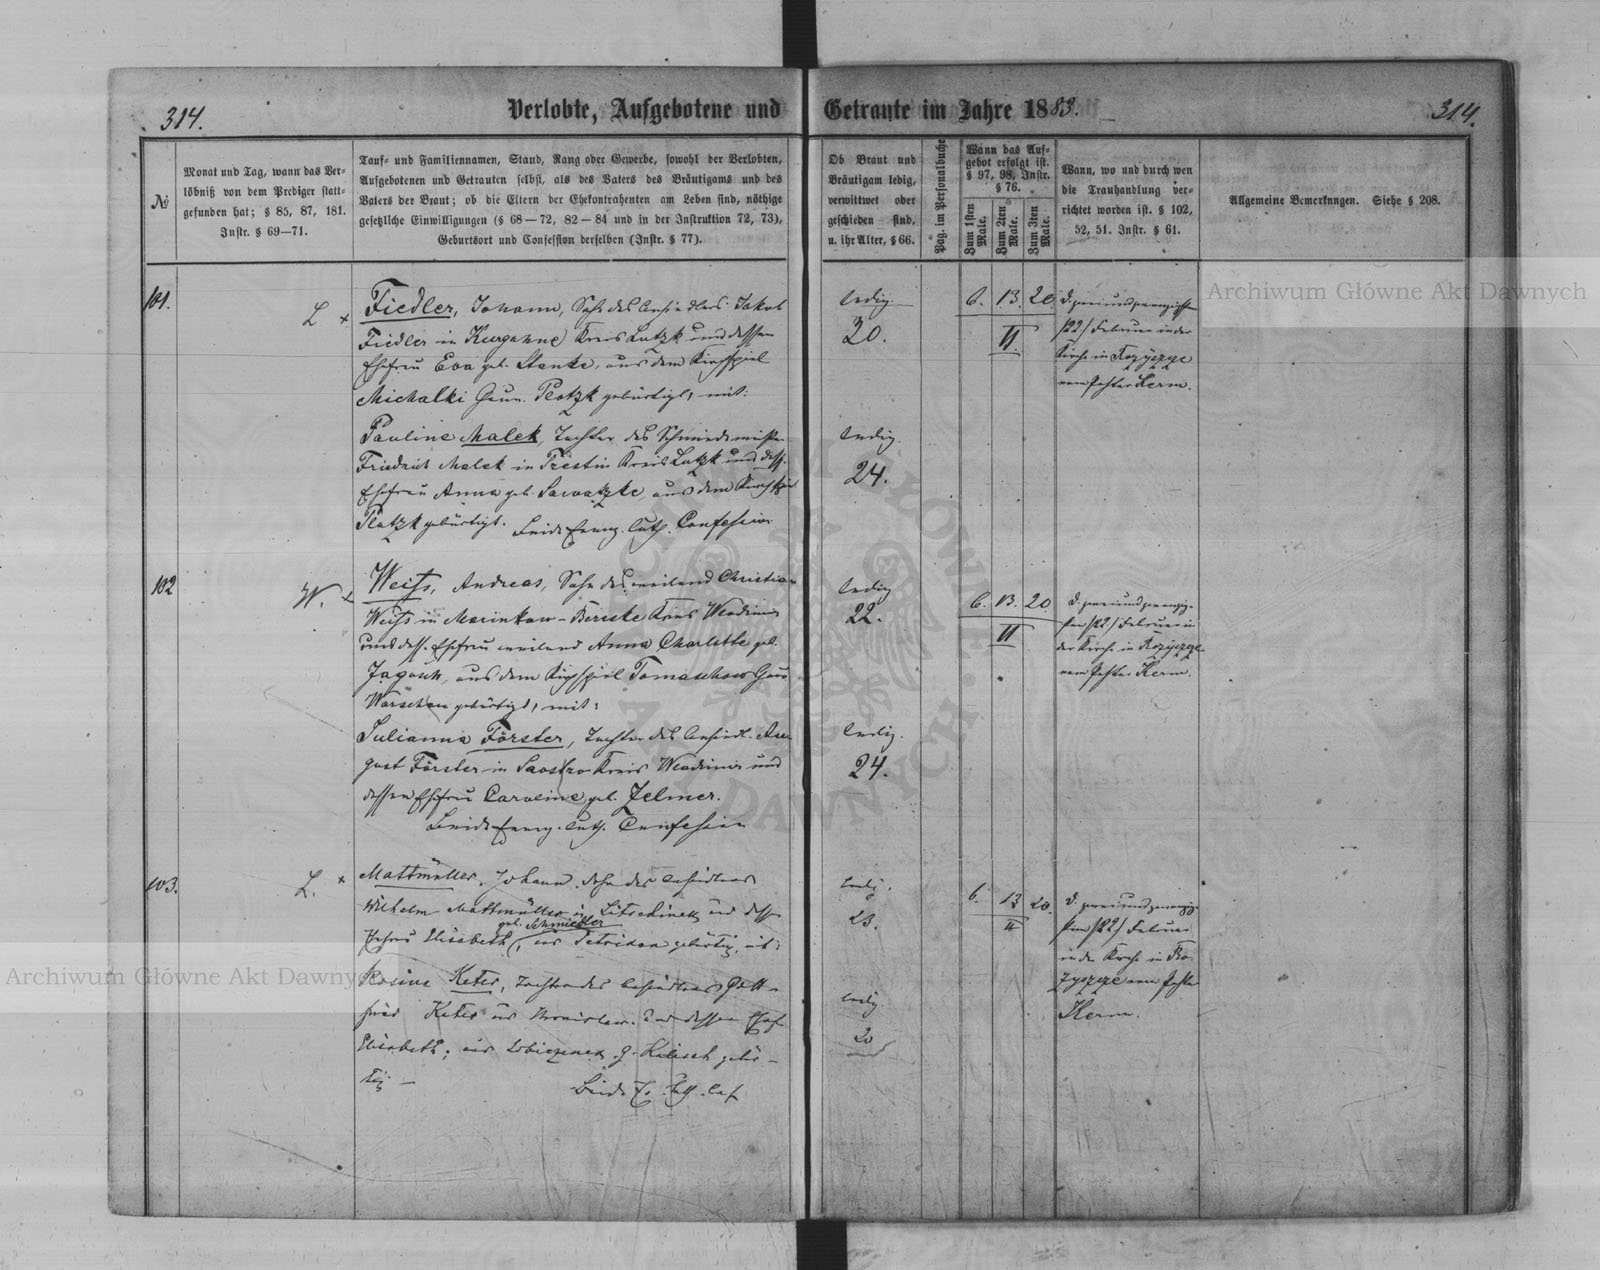 314.
Verlobte, Aufgebotene und Getraute im Jahre 1883.
314.
№
Monat und Tag, wann das Ver-
löbniß von dem Prediger statt-
gefunden hat; § 85, 87, 181.
Instr. § 69—71.
Tauf- und Familiennamen, Stand, Rang oder Gewerbe, sowohl der Verlobten,
Aufgebotenen und Getrauten selbst, als des Vaters des Bräutigams und des
Vaters der Braut; ob die Eltern der Ehekontrahenten am Leben sind, nöthige
gesetzliche Einwilligungen (§ 68—72, 82—84 und in der Instruktion 72, 73),
Geburtsort und Confession derselben (Instr. § 77).
Ob Braut und
Bräutigam ledig,
verwittwet oder
geschieden sind,
u. ihr Alter, § 66.
Pag. im Personalbuche
Wann das Auf-
gebot erfolgt ist.
§ 97, 98, Instr.
§ 76.
Zum 1sten
Male.
Zum 2ten
Male.
Zum 3ten
Male.
Wann, wo und durch wen
die Trauhandlung ver-
richtet worden ist. § 102,
52, 51. Instr. § 61.
Allgemeine Bemerkungen. Siehe § 208.
101.
L ×
Fiedler, Johann, Sohn des Ansiedlers Jakob
Fiedler in Kurgahne Kreis Lutzk und dessen
Ehefrau Eva geb. Stanke, aus dem Kirchspiel
Michalki Gouv. Plotzk gebürtigt, mit:
Pauline Malek, Tochter des Schmiedemeisters
Friedrich Malek in Trestin Kreis Lutzk und dess.
Ehefrau Anna geb. Sawatzke, aus dem Kirchspiel
Plotzk gebürtigt. Beide Evang. Luth. Confession
ledig
20.
ledig.
24.
6. 13. 20.
II.
d. zweiundzwanzigsten
/22/ Februar in der
Kirche in Rozyszcze
vom Pastor Kerm.
102
W. ×
Weiß, Andreas, Sohn des weiland Christian
Weiß in Marinkow-Bereske Kreis Wladimir
und dess. Ehefrau weiland Anna Charlotte geb.
Jagosch, aus dem Kirchspiel Tomaschow Gouv
Warschau gebürtigt, mit:
Julianna Förster, Tochter des Ansiedl. Au-
gust Förster in Kreis Wladimir und
dessen Ehefrau Caroline geb. Zelmer.
Beide Evang. Luth. Confession
ledig
22.
ledig.
24.
6. 13. 20
II
d. zweiundzwanzig-
sten /22/ Februar in
der Kirche in Rozyszcze
vom Pastor Kerm.
103.
L. ×
Mattmüller, Johann, Sohn des Ansiedlers
Wilhelm Mattmüller in und dess
geb. Schmiedler
Ehefrau Elisabeth, aus Petrikau gebürtig, mit:
Rosine Keter, Tochter des Ansiedlers Gott-
fried Keter aus und dessen Ehefr
Elisabeth, aus g. Kalisch gebür-
tig —
Beide Ev. Luth. Conf
ledig.
23.
ledig.
20
6. 13 20.
II
d. zweiundzwanzig-
sten /22/ Februar
in der Kirche in Ro-
zyszcze vom Pastor
Kerm.
Archiwum Główne Akt Dawnych
Archiwum Główne Akt Dawnych